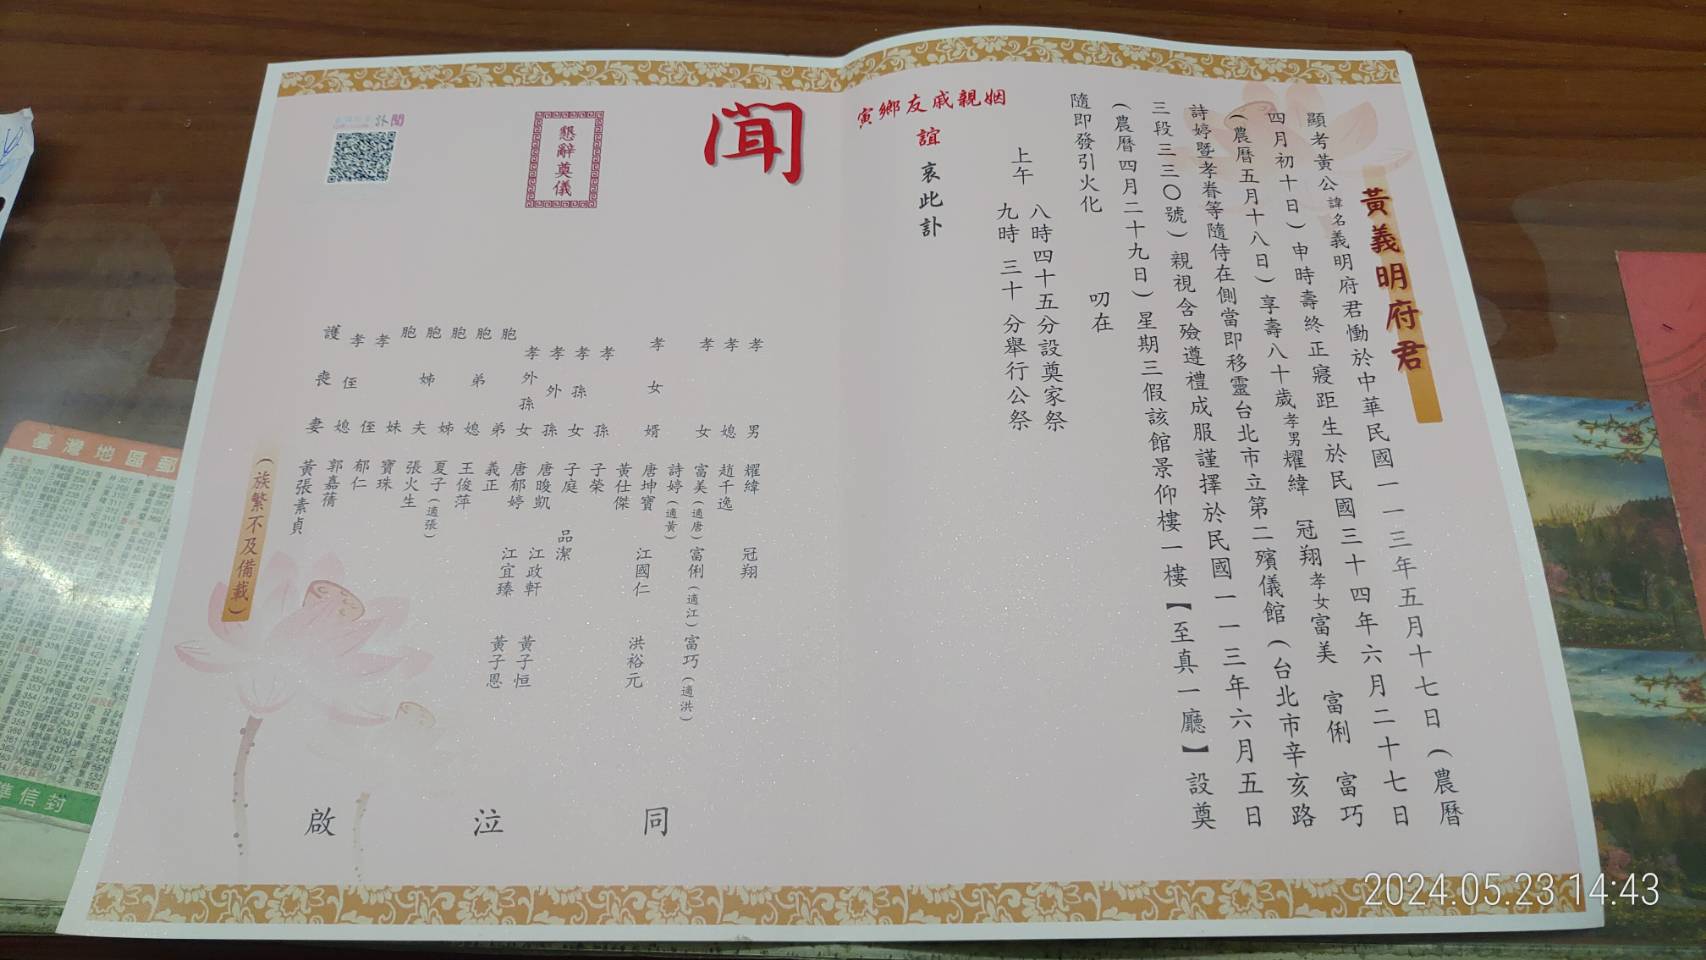 黃義明府君
顯考黃公諱名義明府君慟於中華民國一一三年五月十七日(農曆
四月初十日)申時壽終正寢距生於民國三十四年六月二十七日
(農曆五月十八日)享壽八十歲孝男耀緯 冠翔孝女富美 富俐 富巧
詩婷暨孝眷等隨侍在側當即移靈台北市立第二殯儀館(台北市辛亥路
三段三三〇號)親視含殮遵禮成服謹擇於民國一一三年六月五日
(農曆四月二十九日)星期三假該館景仰樓一樓【至真一廳】設奠
隨即發引火化 叨在
上午 八時四十五分設奠家祭
九時三十分舉行公祭
姻親戚友鄉寅
誼 哀此訃
聞
懇辭奠儀
訃聞
孝男 耀緯 冠翔
孝媳 趙千逸
孝女 富美(適唐) 富俐(適江) 富巧(適洪)
詩婷(適黃)
孝女婿 唐坤寶 江國仁 洪裕元
黃仕傑
孝孫 子榮
孝孫女 子庭 品潔
孝外孫 唐晙凱 江政軒 黃子恒
孝外孫女 唐郁婷 江宜臻 黃子恩
胞弟 義正
胞弟媳 王俊萍
胞姊 夏子(適張)
胞姊夫 張火生
胞妹 寶珠
孝侄 郁仁
孝侄媳 郭嘉蒨
護喪妻 黃張素貞
(族繁不及備載)
同泣啟
臺灣地區郵
準信封
2024.05.23 14:43